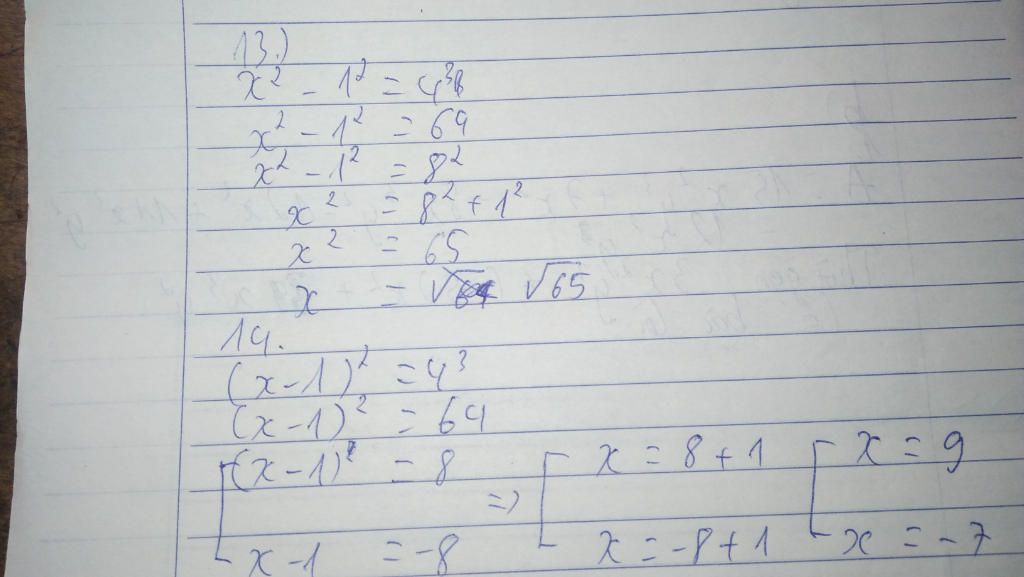 13.)
x² - 1² = 4³
x² - 1² = 64
x² - 1² = 8²
x² = 8² + 1²
x² = 65
x = √65
14.
(x - 1)² = 4³
(x - 1)² = 64
[(x - 1) = 8 => [x = 8 + 1 [x = 9
x - 1 = -8 x = -8 + 1 x = -7